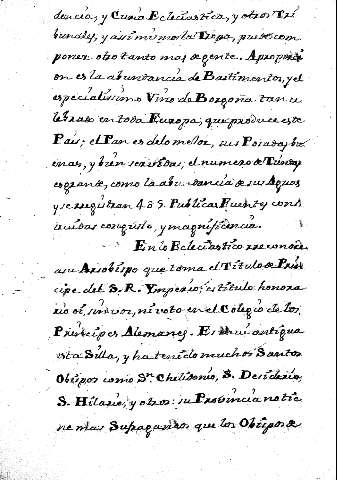 dencia, y Curia Eclesiastica, y otros Tri
bunales, y assimismo la Tropa, puede com
poner otro tanto mas de gente. A proporci
on es la abundancia de Bastimentos, y el
especialissimo Vino de Borgoña tan ce
lebrado en toda Europa, que produce este
Pais; el Pan es de lo mejor, sus Posadas, bue
nas, y bien servidas; el numero de Tiendas
es grande, como la abundancia de sus Aguas
y se registran 4. ò 5. Publicas Fuentes cons
truidas con gusto, y magnificencia.
En lo Eclesiastico reconoce
a su Arzobispo que toma el Titulo de Prin
cipe del S. R. Ymperio; es titulo honora
rio sin voz, ni voto en el Colegio de los
Principes Alemanes. Es mui antigua
esta Silla, y ha tenido muchos Santos
Obispos como Sn. Chelidonio, S. Desiderio,
S. Hilario, y otros: su Provincia no tie
ne mas Sufraganeos que los Obispos de